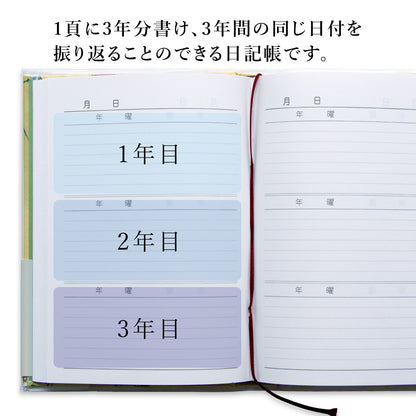 1頁に3年分書け、3年間の同じ日付を
振り返ることのできる日記帳です。
月 日
年 曜
1年目
年 曜
2年目
年 曜
3年目
月 日
年 曜
年 曜
年 曜